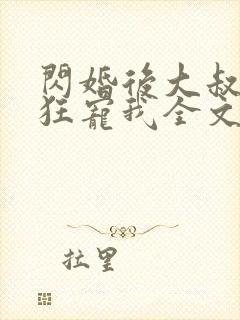 閃婚後大叔
狂寵我全文
拉里